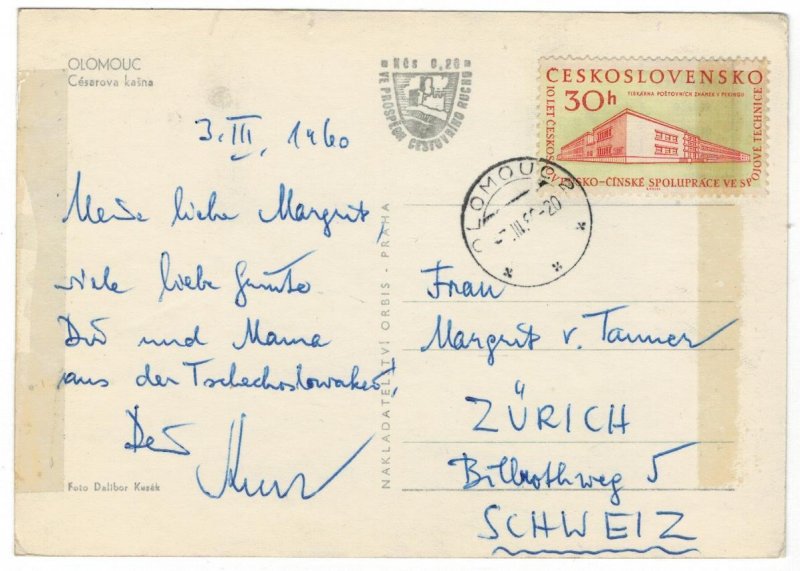 OLOMOUC
Césarova kašna
Kčs 0,20
VE PROSPĚCH CESTOVNÍHO RUCHU
ČESKOSLOVENSKO
30h
TISKÁRNA POŠTOVNÍCH ZNÁMEK V PEKINGU
10 LET ČESKOSLOVENSKO-ČÍNSKÉ SPOLUPRÁCE VE SPOJOVÉ TECHNICE
OLOMOUC 2
3. III. 1960
Meine liebe Margrit,
viele liebe Grüße
Dir und Mama
aus der Tschechoslowakei,
Dein
NAKLADATELSTVÍ ORBIS - PRAHA
Frau
Margrit v. Tanner
ZÜRICH
Billrothweg 5
SCHWEIZ
Foto Dalibor Kusák